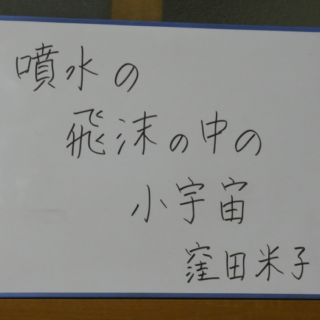 噴水の
飛沫の中の
小宇宙
窪田米子